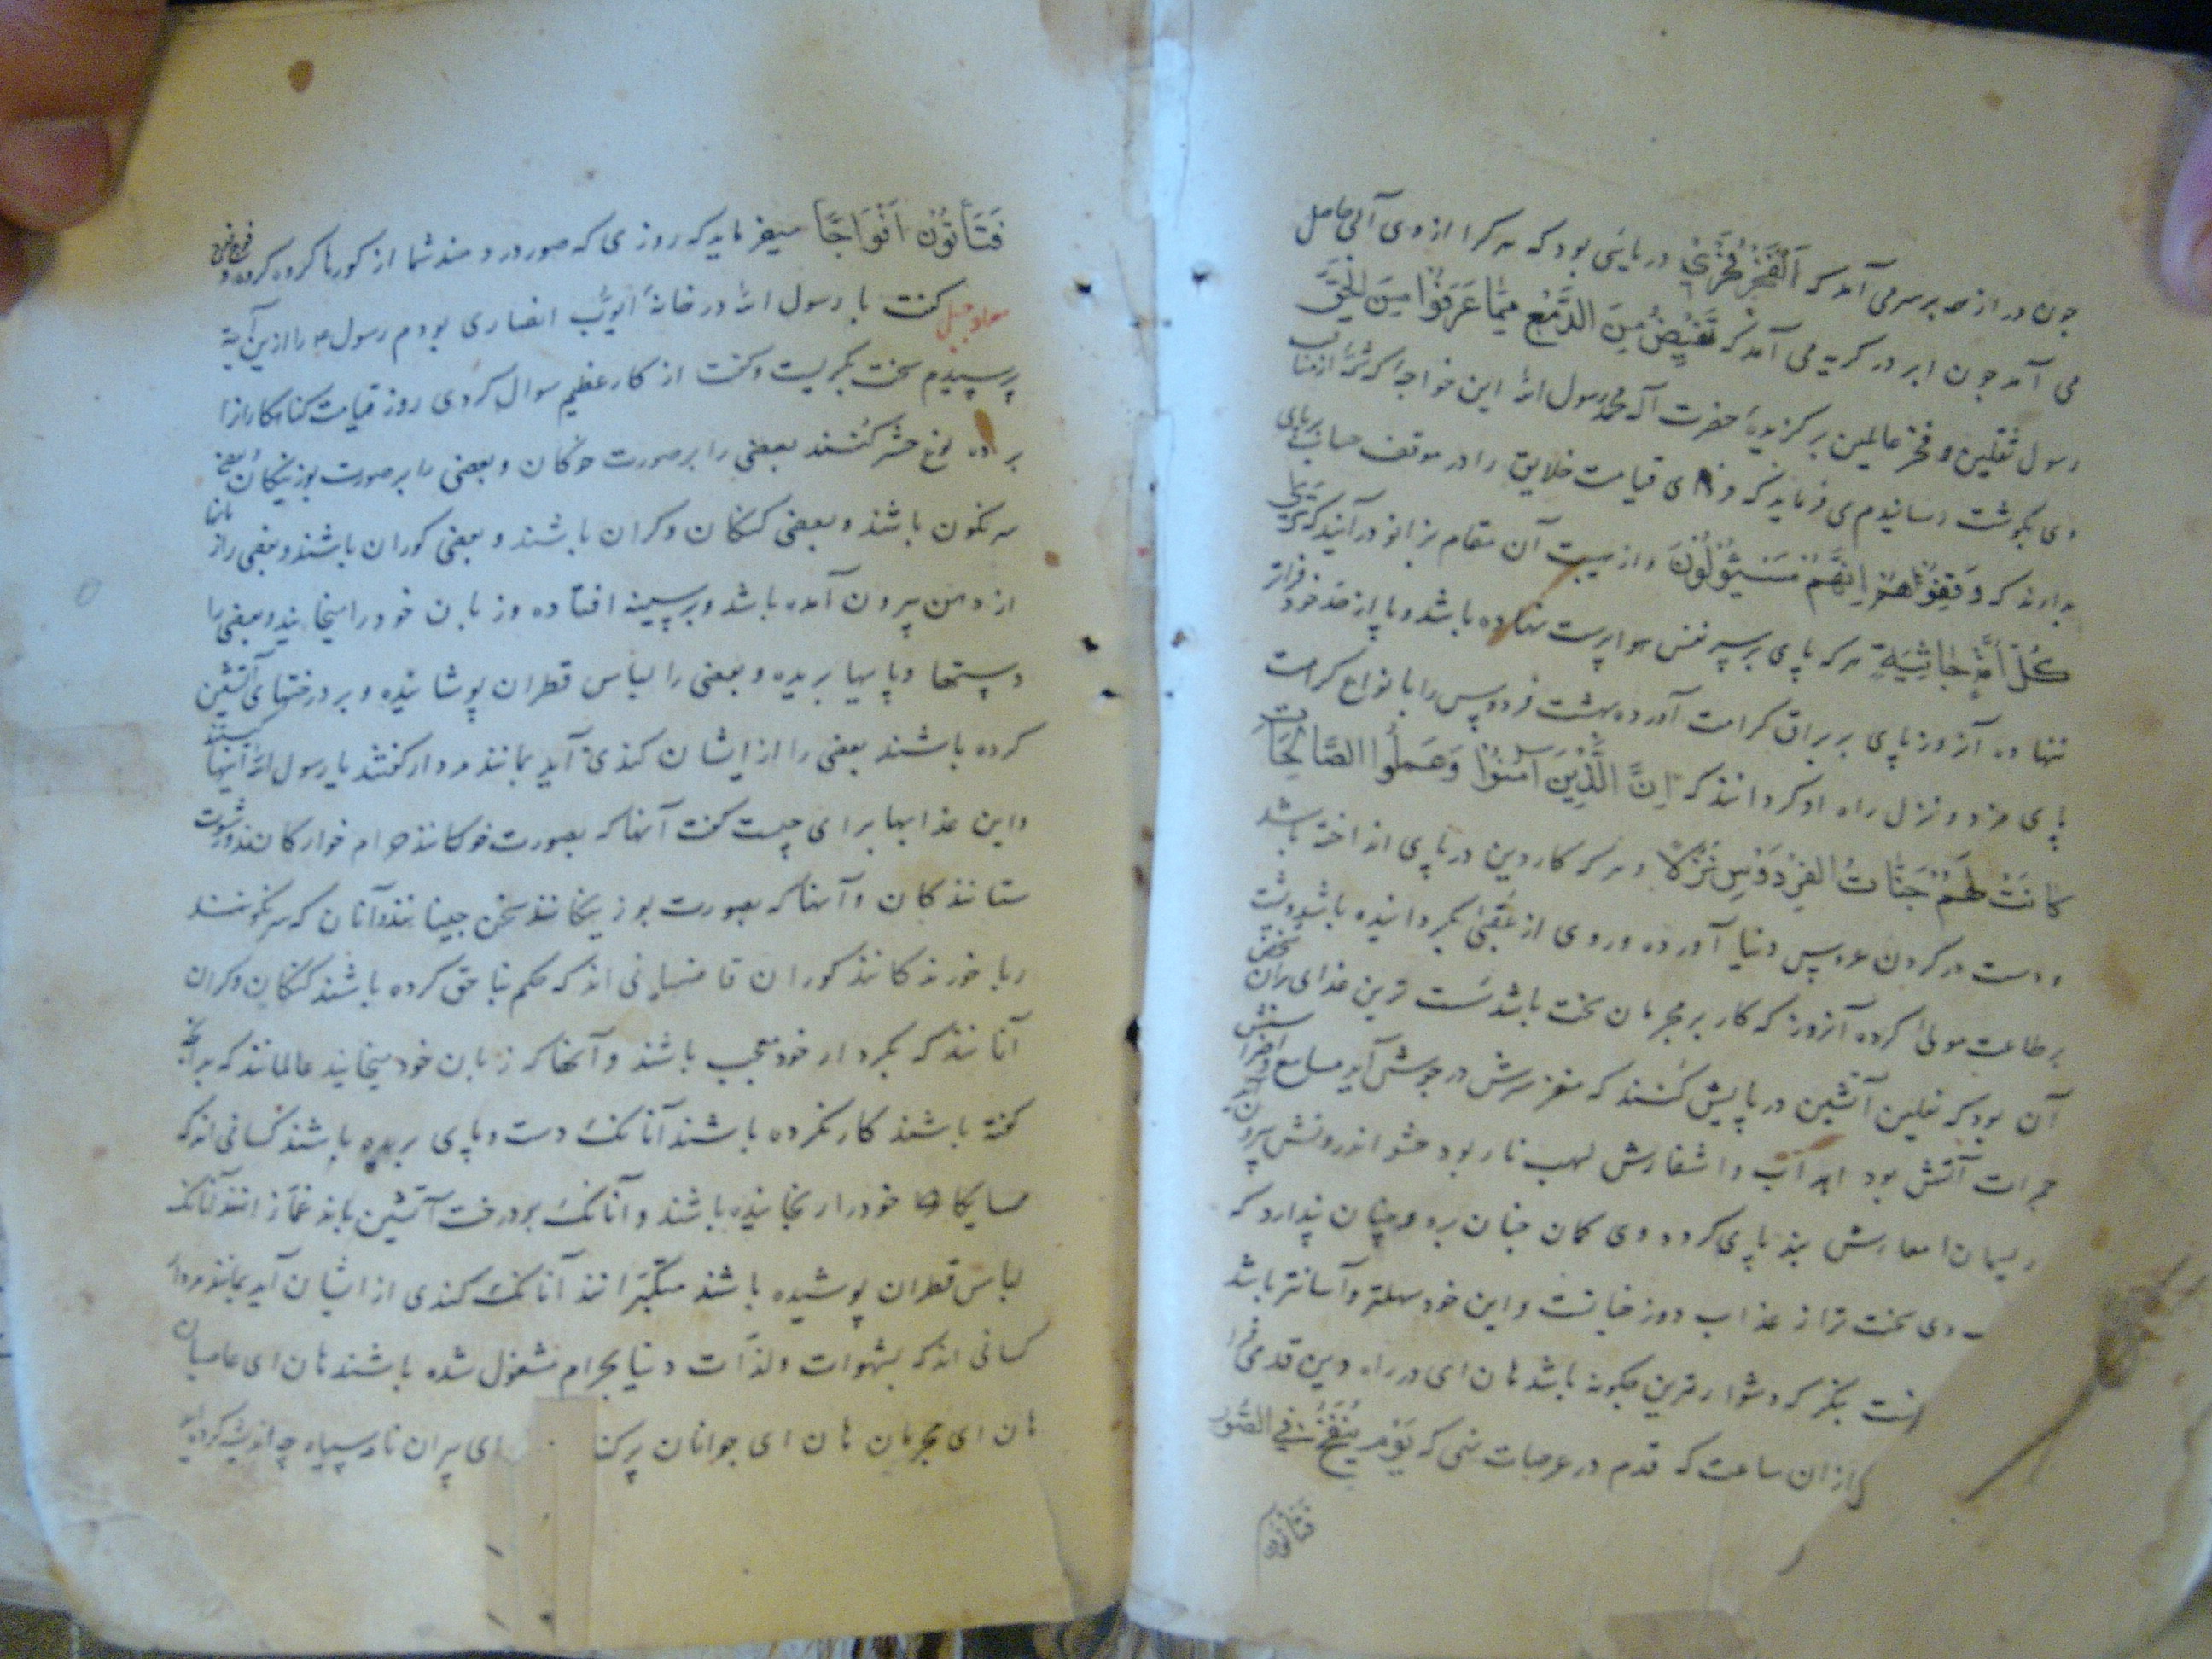 چون در از صد برسر می آمد که اَلْفَقْرُ فَخْرِیْ دریایی بود که هر کرا از وی آبی حاصل
می آمد چون ابر در کریه می آمد که تَفِیْضُ مِنَ الدَّمْعِ مِمَّا عَرَفُوْا مِنَ الْحَقِّ
رسول ثقلین و فخر عالمین برکزیدهٔ حضرت اله محمد رسول الله این خواجه که
وی بکوشت رسانیدم می فرماید که فردای قیامت خلایق را در موقف حساب برپای
بدارند که وَقِفُوْهُمْ اِنَّهُمْ مَسْئُوْلُوْنَ و از هیبت آن مقام بزانو درآیند که تَرٰی
کُلَّ اُمَّةٍ جَاثِیَةٍ هر که پای بر سر نفس هواپرست نهاده باشد و پا از حد خود فراتر
ننهاده آنروز پای بر براق کرامت آورده بهشت فردوس را با نواع کرامت
پای مزد و نزل راه او کردانند که اِنَّ الَّذِیْنَ آمَنُوْا وَعَمِلُوا الصَّالِحَاتِ
کَانَتْ لَهُمْ جَنَّاتُ الْفِرْدَوْسِ نُزُلًا و هر که کار دین در پای انداخته باشد
و دست در کردن عروس دنیا آورده و روی از عُقْبٰی بکردانیده باشد و پشت
بر طاعت مولیٰ کرده آنروز که کار بر مجرمان سخت باشد سُست ترین عذای
آن بود که نعلین آتشین در پایش کنند که مغز سرش در جوش آید مسامع و اضراسش
جمرات آتش بود اهداب و اشفارش لهب نار بود حشو اندرونش بیرون
امعارش بند پای کردد وی کمان چنان برد و چنان پندارد که
وی سخت تر از عذاب دوز خیانست و این خود سهلتر و آسانتر باشد
بنکر که دشوارترین چکونه باشد هان ای در راه دین قدمی
ازان ساعت که قدم در عرصات نهی که یَوْمَ یُنْفَخُ فِی الصُّوْرِ
فتأتون
فَتَأْتُوْنَ اَفْوَاجًا میفرماید که روزی که صور در دمند شما از کورها کروه کروه و فوج فوج
معاذ جبل کفت یا رسول الله در خانهٔ ایوب انصاری بودم رسول ع را ازین آیة
پرسیدم سخت بکریست و کفت از کار عظیم سوال کردی روز قیامت کناهکارانرا
بر ده نوع حشر کنند بعضی را بر صورت خوکان و بعضی را بر صورت بوزینکان و بعضی
سرنکون باشند و بعضی کنکان و کران باشند و بعضی کوران باشند و بعضی را زبانها
از دهن بیرون آمده باشد و بر سینه افتاده و زبان خود را میخایند و بعضی را
دستها و پایها بریده و بعضی را لباس قطران پوشانیده و بر درختهای آتشین
کرده باشند بعضی را از ایشان کندی آید بمانند مردار کفتند یا رسول الله اینها کیستند
و این عذابها برای چیست کفت آنها که بصورت خوکانند حرام خوارکانند و رشوت
ستانندکان و آنها که بصورت بوزینکانند سخن چینانند و آنان که سرنکونند
ربا خورندکانند کوران قاضیانی اند که حکم بنا حق کرده باشند کنکان و کران
آنانند که بکردار خود معجب باشند و آنها که زبان خود میخایند عالمانند که بدانچه
کفته باشند کار نکرده باشند آنانک دست و پای بریده باشند کسانی اند که
همسایکان خود را رنجانیده باشند و آنانک بر درخت آتشین باند غمازانند آنانک
لباس قطران پوشیده باشند متکبرانند آنانک کندی از ایشان آید بمانند مردار
کسانی اند که بشهوات و لذّات دنیا بحرام مشغول شده باشند هان ای عاصیان
هان ای مجرمان هان ای جوانان ای پیران نامه سیاه چه اندیشه کرده اید